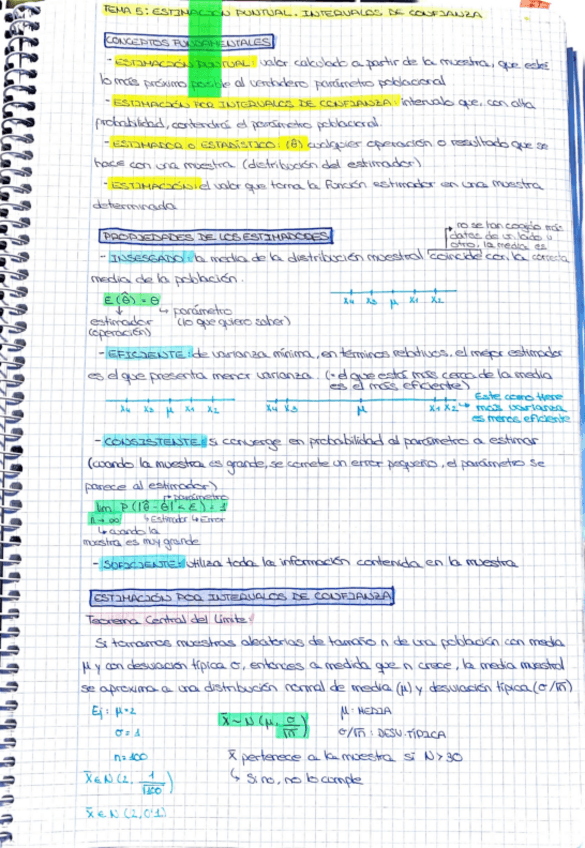 TEMA 5: ESTIMACIÓN PUNTUAL. INTERVALOS DE CONFIANZA
CONCEPTOS FUNDAMENTALES
- ESTIMACIÓN PUNTUAL: valor calculado a partir de la muestra, que esté
lo más próximo posible al verdadero parámetro poblacional
- ESTIMACIÓN POR INTERVALOS DE CONFIANZA: intervalo que, con alta
probabilidad, contendrá el parámetro poblacional.
- ESTIMADOR O ESTADÍSTICO: (θ̂) cualquier operación o resultado que se
hace con una muestra (distribución del estimador)
- ESTIMACIÓN: el valor que toma la función estimador en una muestra
determinada
PROPIEDADES DE LOS ESTIMADORES
no se han cogido más
datos de un lado u
otro, la media es
la correcta
- INSESGADO: la media de la distribución muestral coincide con la
media de la población.
E(θ̂) = θ
↳ parámetro
(lo que quiero saber)
estimador
(operación)
X4 X3 μ X1 X2
- EFICIENTE: de varianza mínima, en términos relativos, el mejor estimador
es el que presenta menor varianza. (el que está más cerca de la media
es el más eficiente)
X4 X3 μ X1 X2
X4 X3 μ X1 X2
Este como tiene
más varianza
es menos eficiente
- CONSISTENTE: si converge en probabilidad al parámetro a estimar
(cuando la muestra es grande, se comete un error pequeño, el parámetro se
parece al estimador)
↱ parámetro
lim P(|θ̂ - θ| < ε) = 1
n→∞ ↳ Estimador ↳ Error
↳ cuando la
muestra es muy grande
- SUFICIENTE: utiliza toda la información contenida en la muestra
ESTIMACIÓN POR INTERVALOS DE CONFIANZA
Teorema Central del Límite:
Si tomamos muestras aleatorias de tamaño n de una población con media
μ y con desviación típica σ, entonces a medida que n crece, la media muestral
se aproxima a una distribución normal de media (μ) y desviación típica (σ/√n)
Ej: μ=2
σ=1
n=100
X̄ ∈ N(2, 1/√100)
X̄ ∈ N(2, 0'1)
X̄ ~ N(μ, σ/√n)
μ: MEDIA
σ/√n: DESV. TÍPICA
X̄ pertenece a la muestra si N>30
↳ Si no, no lo cumple